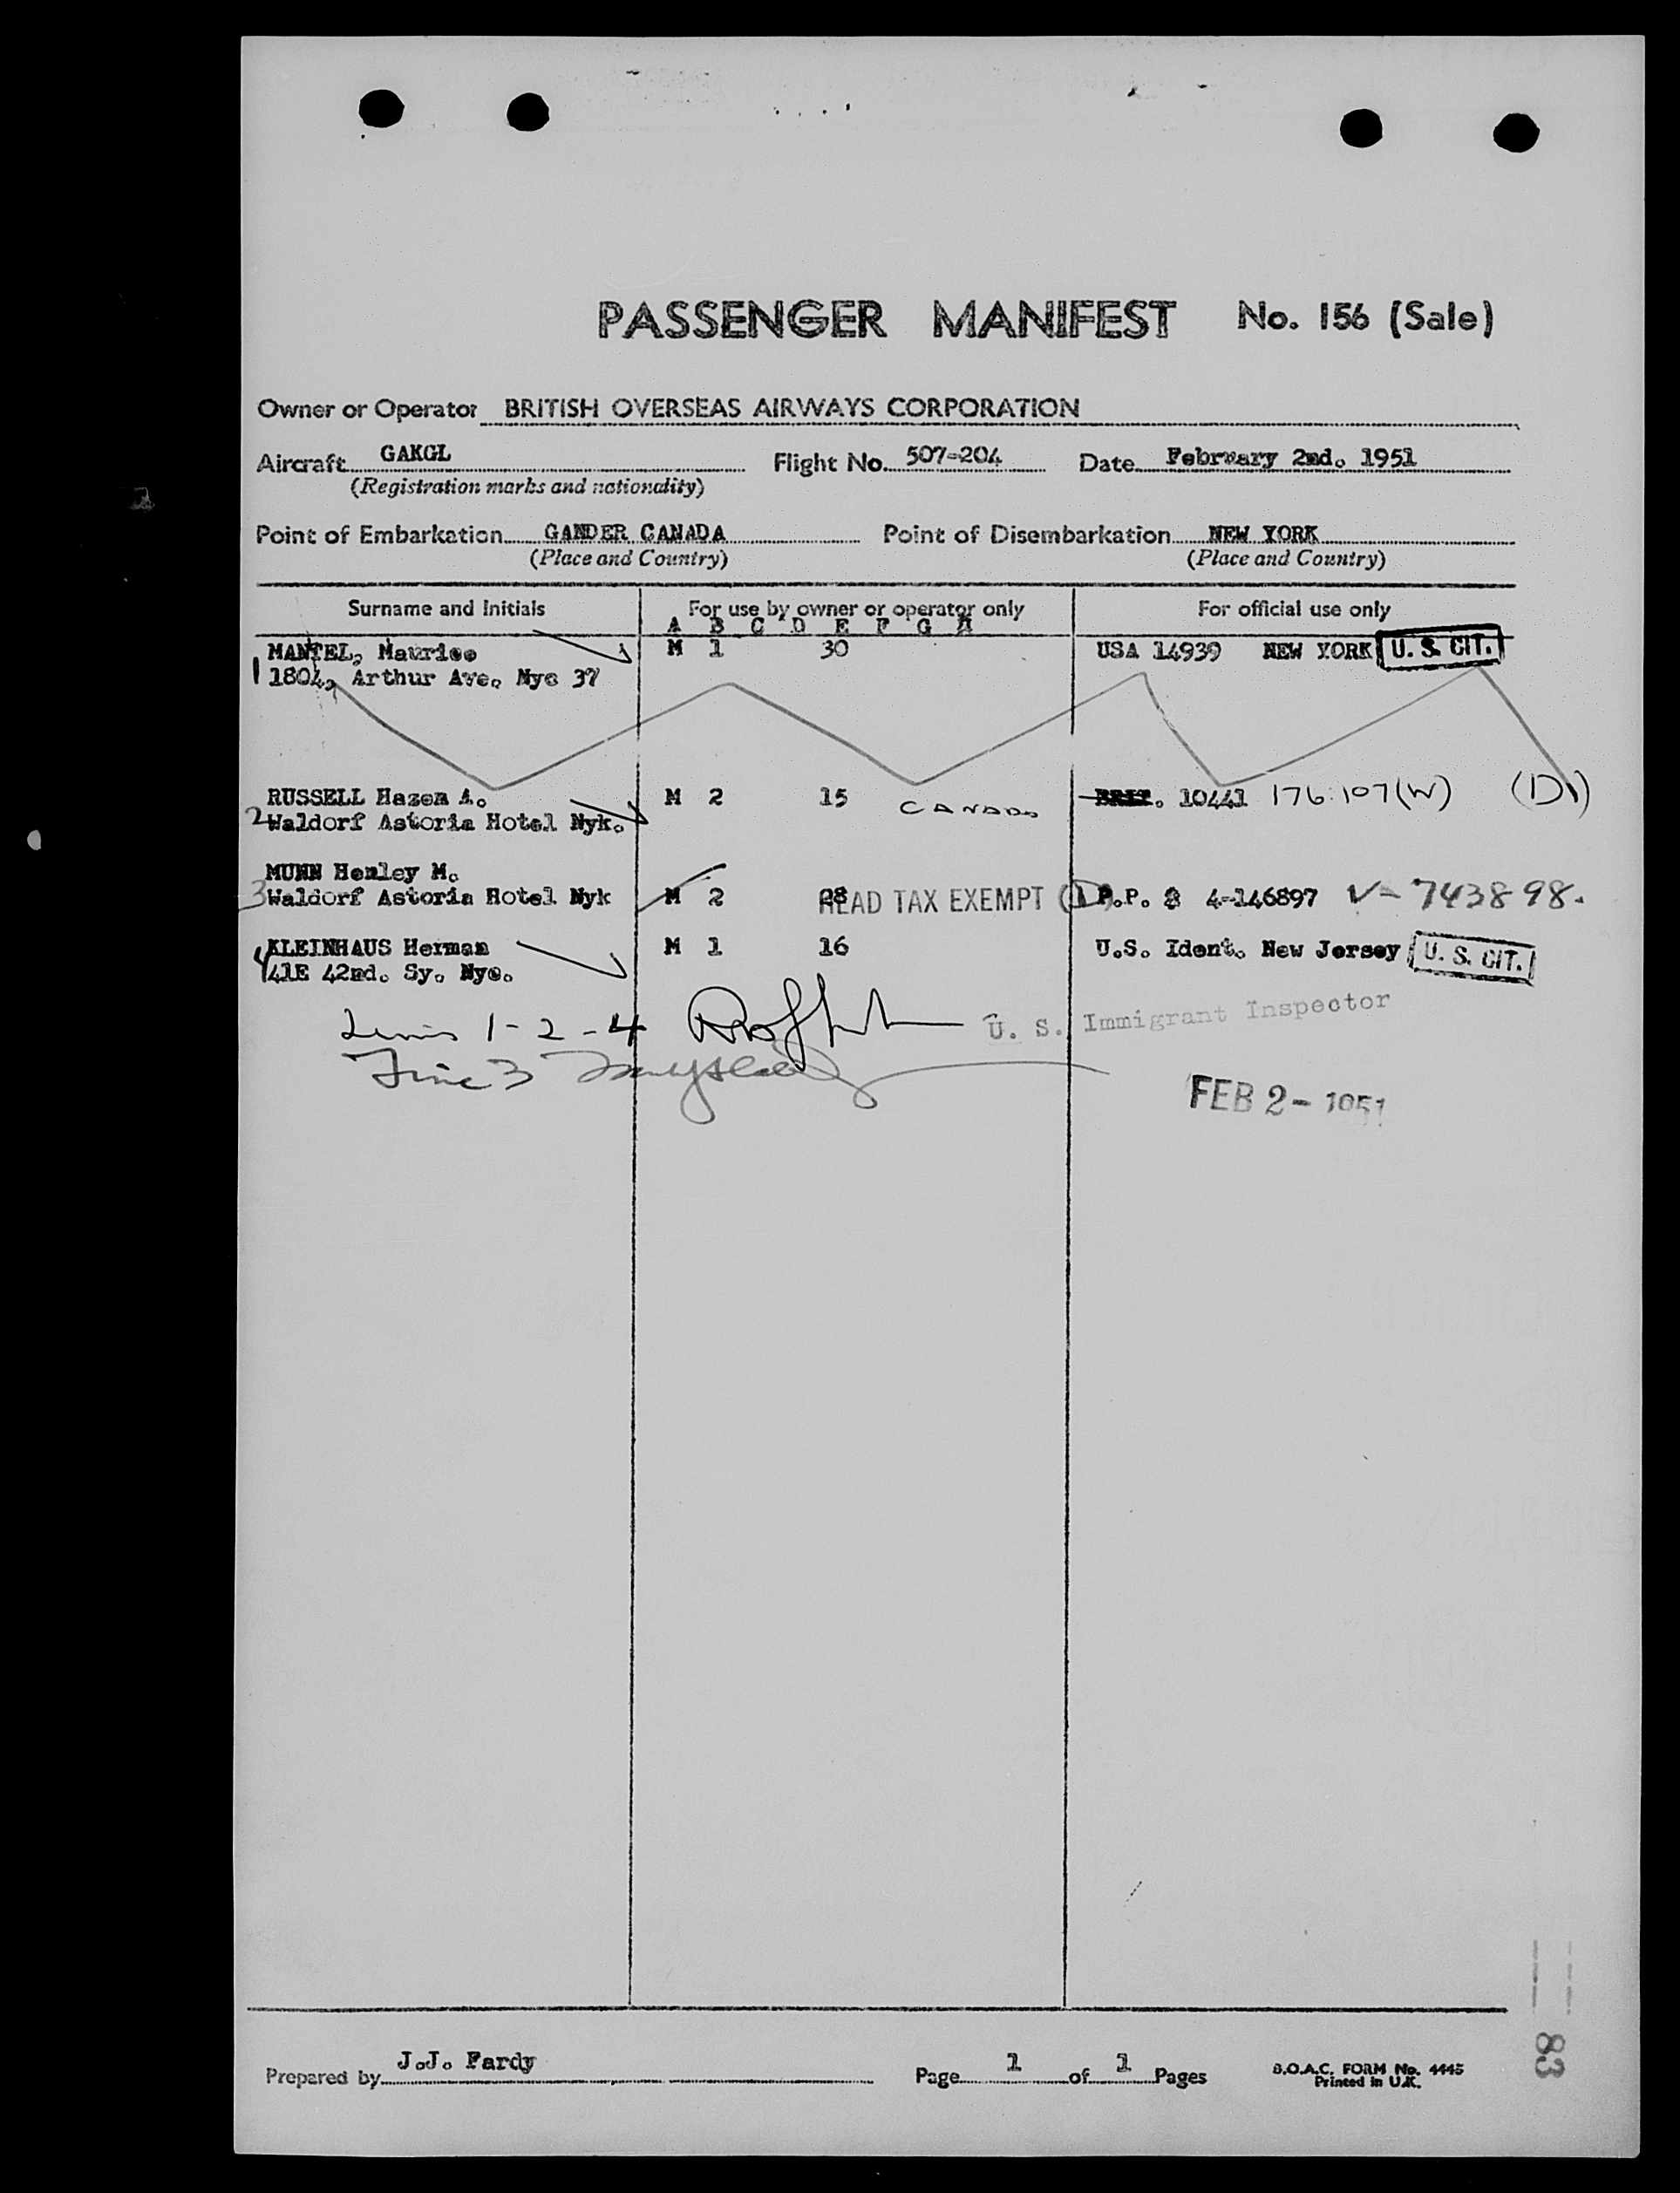 PASSENGER MANIFEST No. 156 (Sale)
Owner or Operator BRITISH OVERSEAS AIRWAYS CORPORATION
Aircraft GAKGL Flight No. 507-204 Date February 2nd. 1951
(Registration marks and nationality)
Point of Embarkation GANDER CANADA Point of Disembarkation NEW YORK
(Place and Country) (Place and Country)
Surname and Initials For use by owner or operator only For official use only
A B C D E F G H
MANTEL, Maurice M 1 30 USA 14939 NEW YORK U. S. CIT.
1 1804, Arthur Ave. Nyc 37
RUSSELL Hazen A. M 2 15 CANADA BRIT. 10441 176.107(W) (D1)
2 Waldorf Astoria Hotel Nyk.
MUNN Henley M.
3 Waldorf Astoria Hotel Nyk M 2 28 HEAD TAX EXEMPT (1) P.P. 4-146897 V-743898.
KLEINHAUS Herman M 1 16 U.S. Ident. New Jersey U. S. CIT.
4 41E 42nd. Sy. Nyc.
Lines 1-2-4 U. S. Immigrant Inspector
Line 3
FEB 2- 1951
83
Prepared by J.J. Fardy Page 1 of 1 Pages B.O.A.C. FORM No. 4445
Printed in U.K.